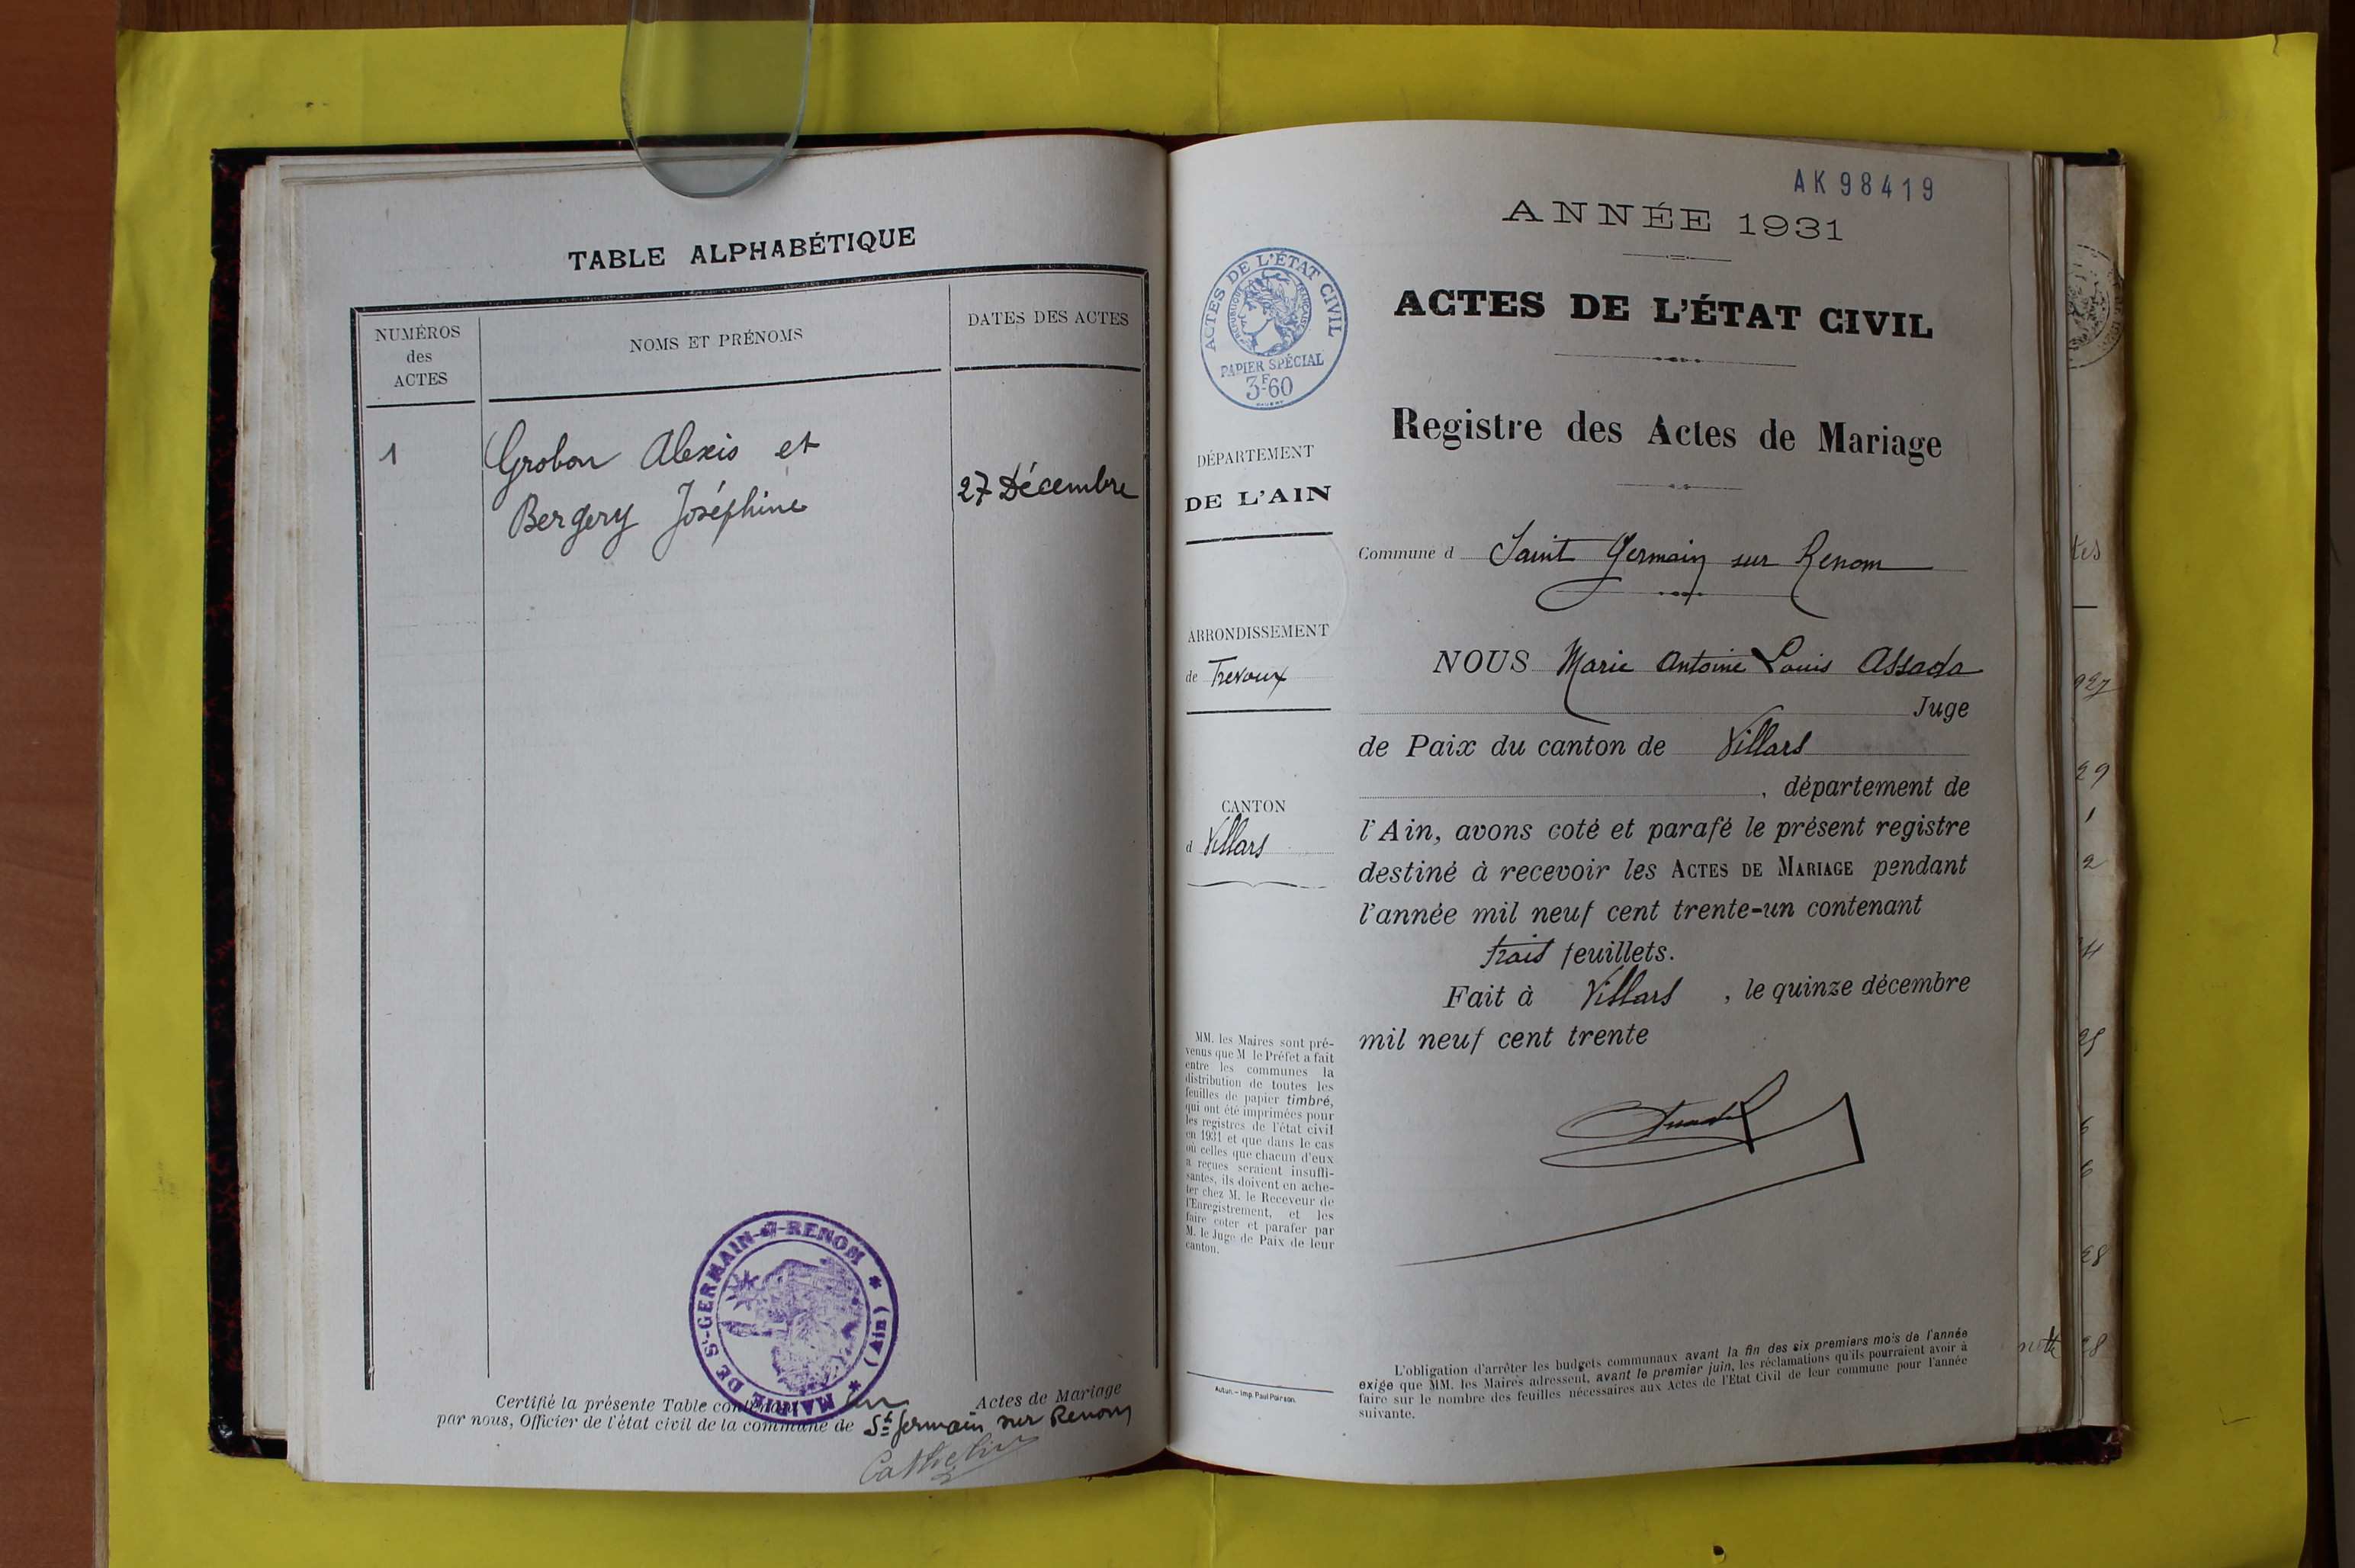 TABLE ALPHABÉTIQUE
NUMÉROS
des
ACTES
NOMS ET PRÉNOMS
DATES DES ACTES
1
Grobon Alexis et
Bergery Joséphine
27 Décembre
MAIRIE DE St-GERMAIN-S-RENOM * (Ain) *
Certifié la présente Table contenant un Actes de Mariage
par nous, Officier de l'état civil de la commune de St Germain sur Renom
AK98419
ANNÉE 1931
ACTES DE L'ÉTAT CIVIL
RÉPUBLIQUE FRANÇAISE
PAPIER SPÉCIAL
3F60
ACTES DE L'ÉTAT CIVIL
Registre des Actes de Mariage
DÉPARTEMENT
DE L'AIN
Commune d Saint Germain sur Renom
ARRONDISSEMENT
de Trevoux
NOUS Marie Antoine Louis Assada
Juge
de Paix du canton de Villars
, département de
CANTON
d Villars
l'Ain, avons coté et parafé le présent registre
destiné à recevoir les ACTES DE MARIAGE pendant
l'année mil neuf cent trente-un contenant
trois feuillets.
Fait à Villars, le quinze décembre
mil neuf cent trente
MM. les Maires sont pré-
venus que M le Préfet a fait
entre les communes la
distribution de toutes les
feuilles de papier timbré,
qui ont été imprimées pour
les registres de l'état civil
en 1931 et que dans le cas
où celles que chacun d'eux
a reçues seraient insuffi-
santes, ils doivent en ache-
ter chez M. le Receveur de
l'Enregistrement, et les
faire coter et parafer par
M. le Juge de Paix de leur
canton.
Autun. – Imp. Paul Poirson.
L'obligation d'arrêter les budgets communaux avant la fin des six premiers mois de l'année
exige que MM. les Maires adressent, avant le premier juin, les réclamations qu'ils pourraient avoir à
faire sur le nombre des feuilles nécessaires aux Actes de l'Etat Civil de leur commune pour l'année
suivante.